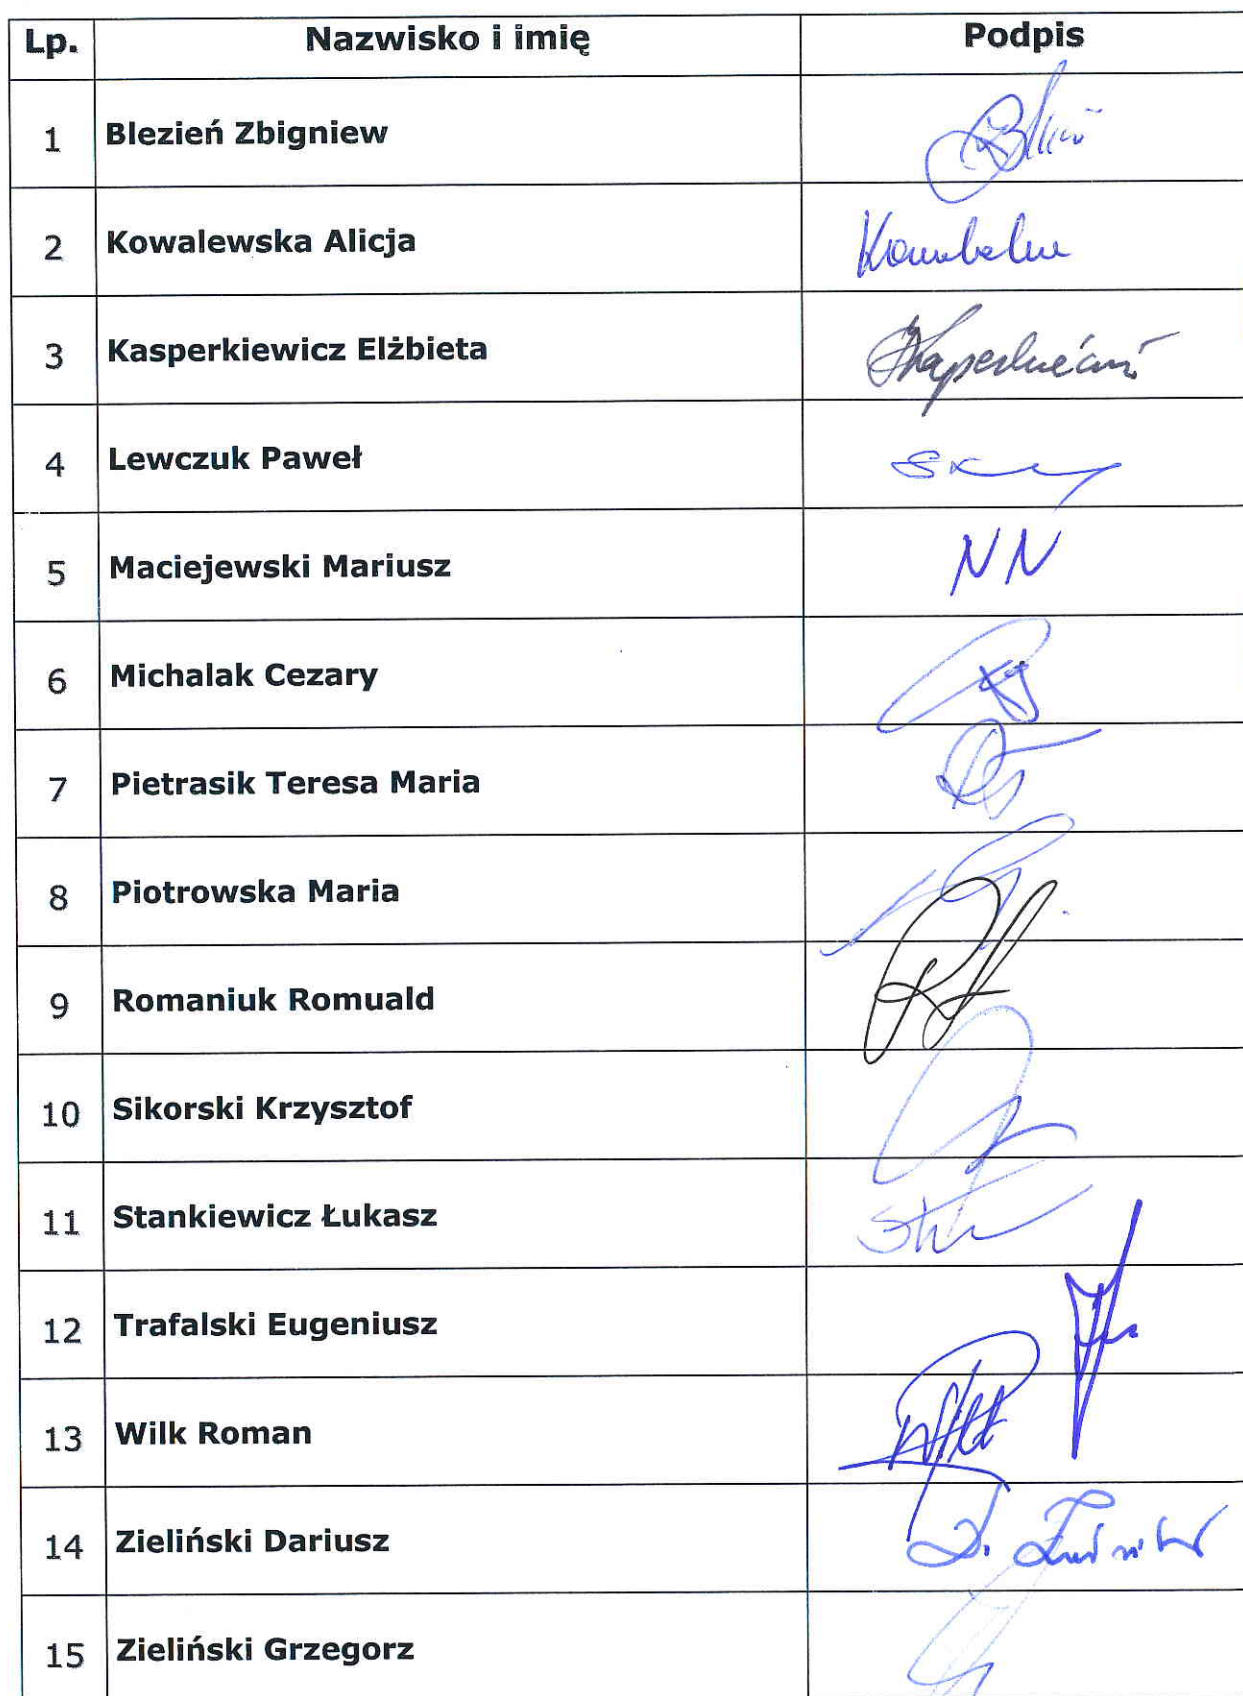 Lp. Nazwisko i imię Podpis
1 Blezień Zbigniew
2 Kowalewska Alicja
3 Kasperkiewicz Elżbieta
4 Lewczuk Paweł
5 Maciejewski Mariusz NN
6 Michalak Cezary
7 Pietrasik Teresa Maria
8 Piotrowska Maria
9 Romaniuk Romuald
10 Sikorski Krzysztof
11 Stankiewicz Łukasz
12 Trafalski Eugeniusz
13 Wilk Roman
14 Zieliński Dariusz
15 Zieliński Grzegorz